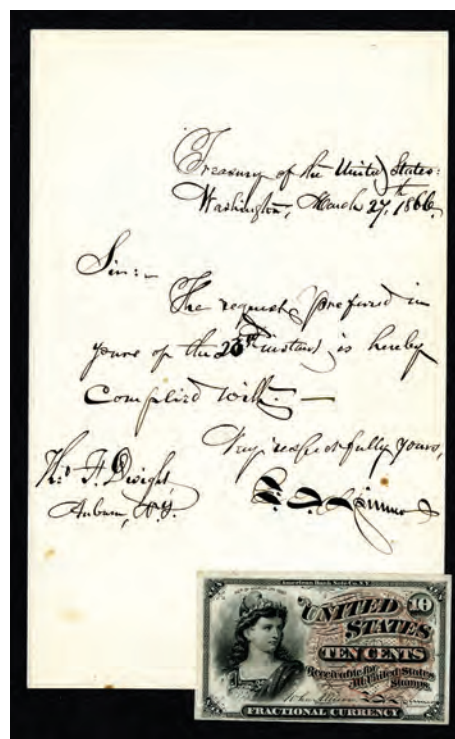 Treasury of the United States:
Washington, March 27th, 1866.
Sir:-
The request preferred in
yours of the 23rd instant, is hereby
Complied with. —
Very respectfully yours,
Th. F. Dwight
Auburn, N.Y.
American Bank Note Co. N.Y.
UNITED 10
STATES
TEN CENTS
Receivable for
All United States
Stamps.
FRACTIONAL CURRENCY